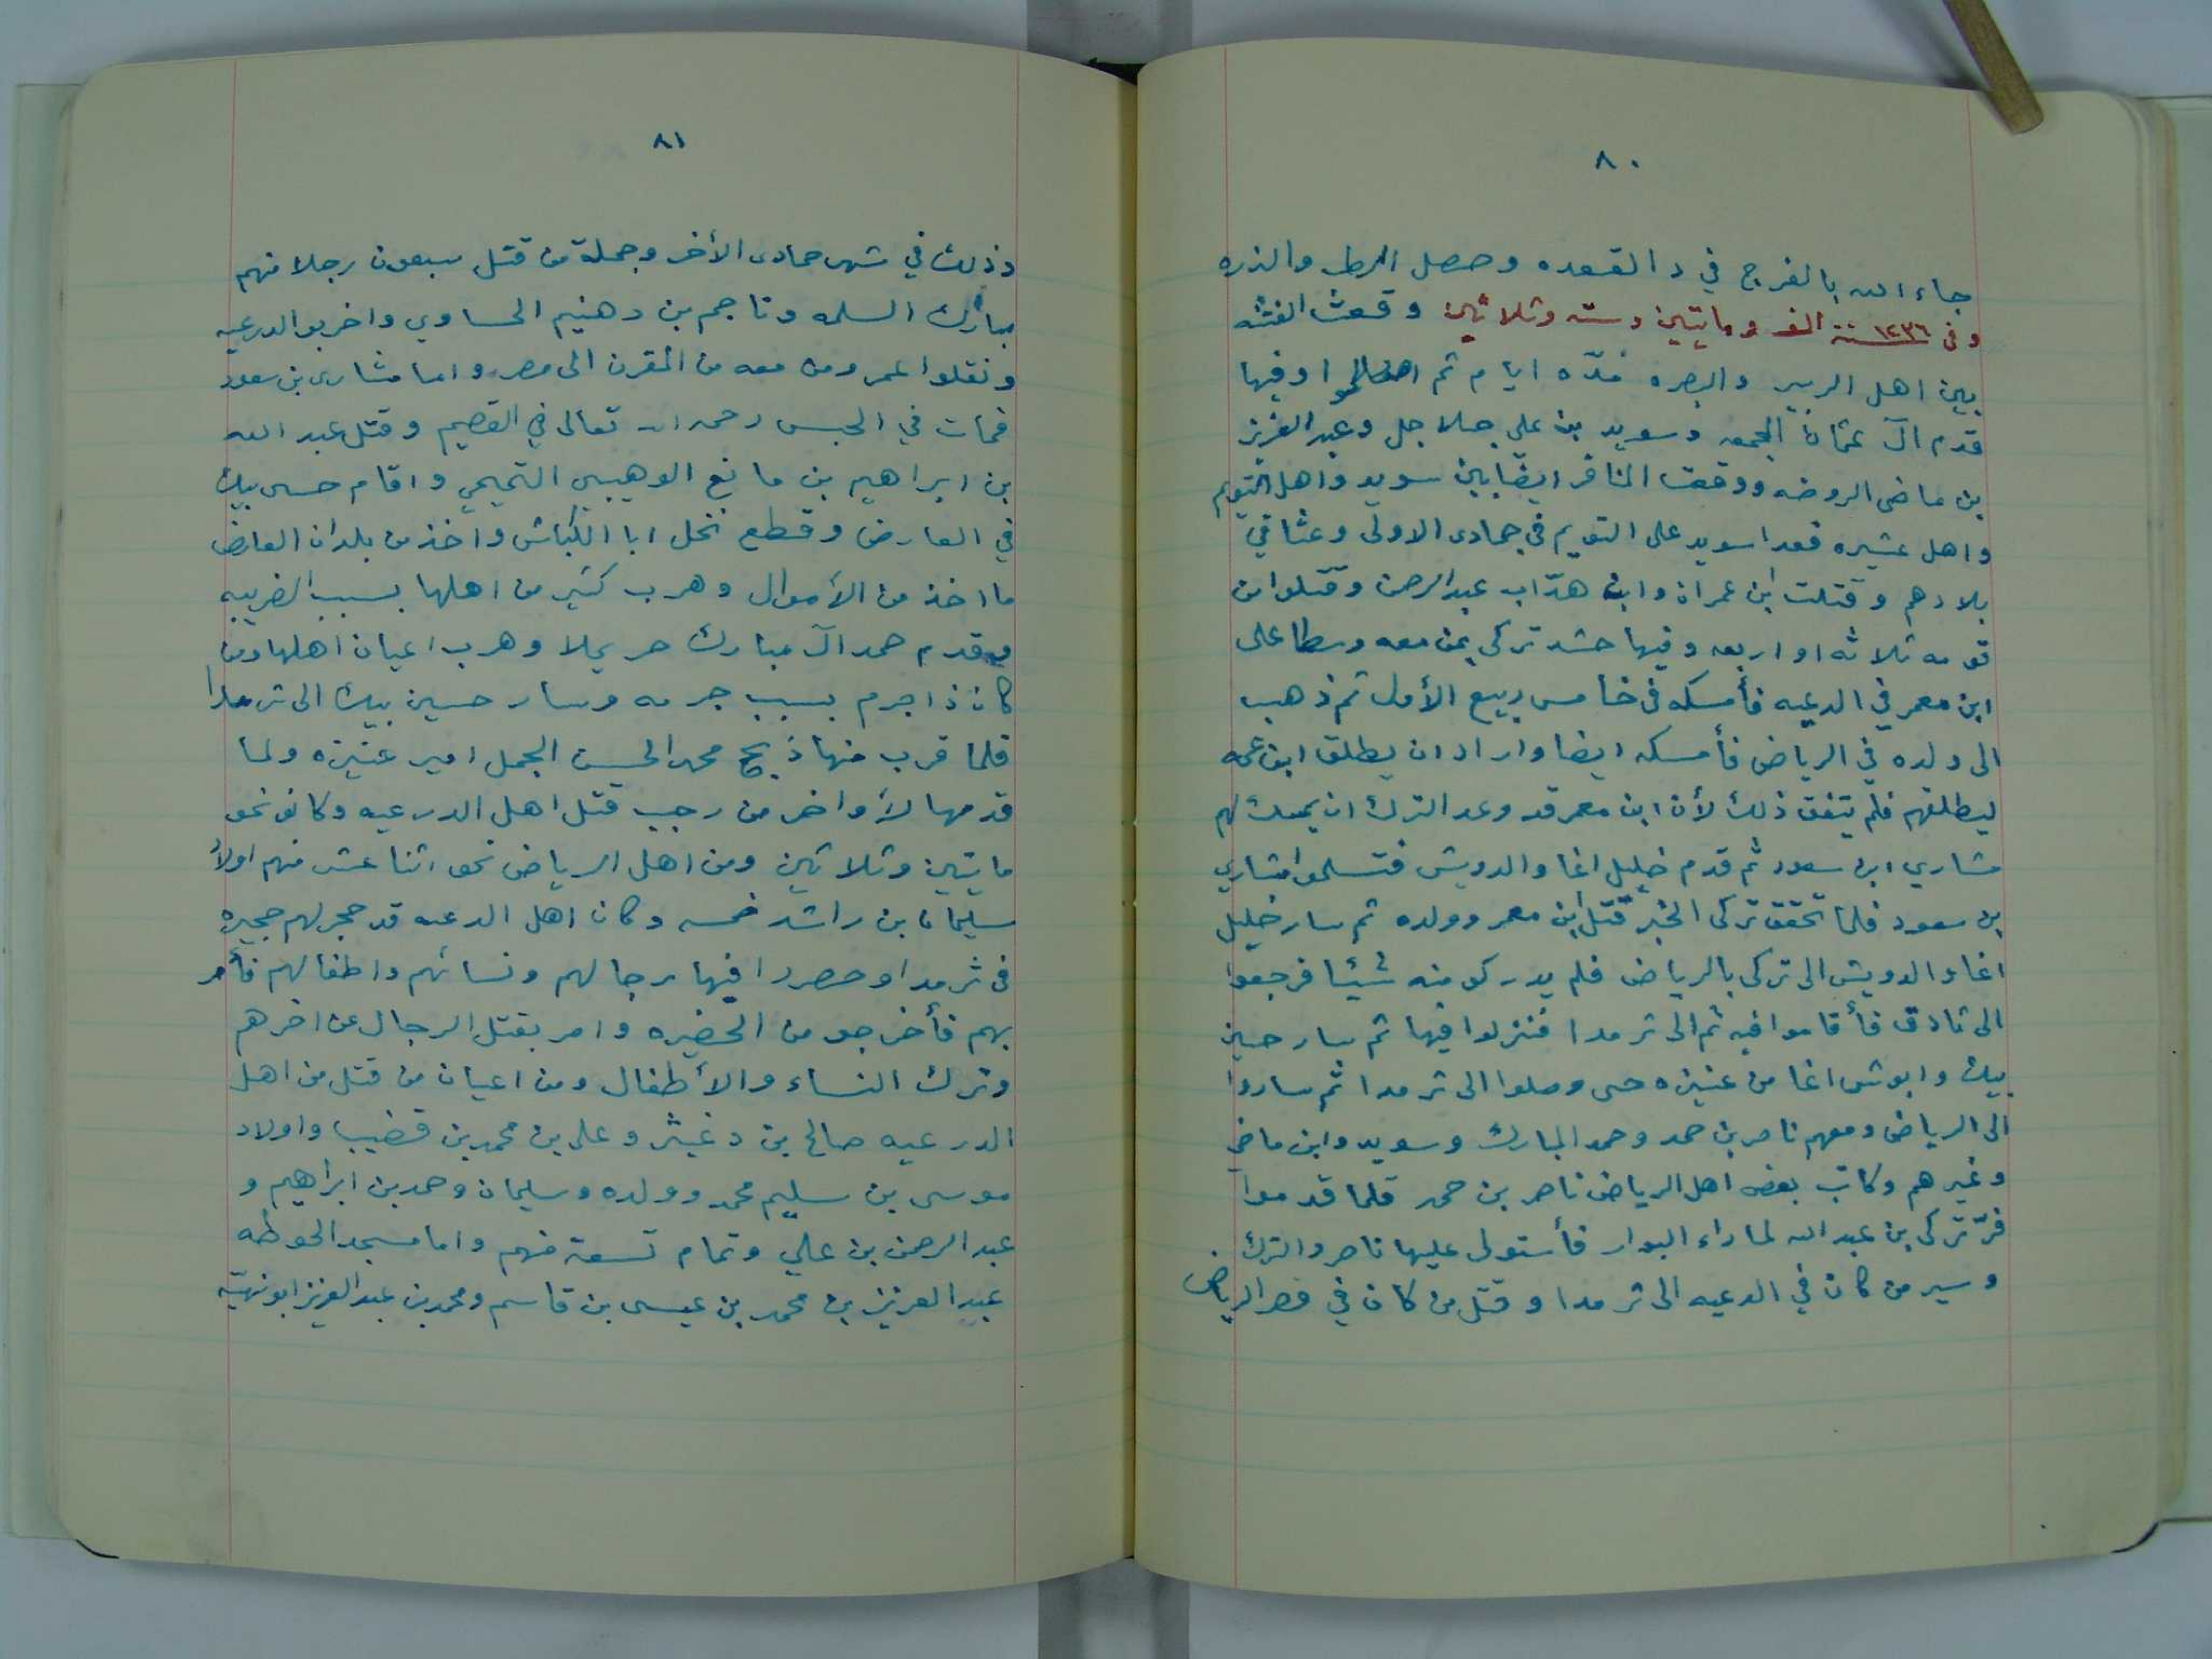 ٨٠
جاء الله بالفرج في دالقعده وحصل الرطب والذره
وفي ١٢٣٦ سنة الف ومايتين وسته وثلاثين وقعت الفتنه
بين اهل الزبير والبصره مدّه ايام ثم اصطلحوا وفيها
قدم آل عثمان المجمعه وسويد بن علي جلاجل وعبد العزيز
بن ماضي الروضه ووقعت المنافر ايضا بين سويد واهل التويم
واهل عشيره فعدا سويد على التويم في جمادى الاولى وعثا في
بلادهم وقتلت ابن عمران وابن هدّاب عبد الرحمن وقتلوا من
قومه ثلاثه او اربعه وفيها حشد تركي بمن معه وسطا على
ابن معمر في الدرعيه فأمسكه في خامس ربيع الأول ثم ذهب
الى ولده في الرياض فأمسكه ايضا واراد ان يطلق ابن عمه
ليطلقهم فلم يتفق ذلك لأن ابن معمر قد وعد الترك ان يمسك لهم
مشاري ابن سعود ثم قدم خليل اغا والدويش فتسلموا مشاري
بن سعود فلما تحقق تركي الخبر قتل ابن معمر وولده ثم سار خليل
اغا والدويش الى تركي بالرياض فلم يدركو منه شيئا فرجعوا
الى ثادق فأقاموا فيه ثم الى ثرمدا فنزلوا فيها ثم سار حسين
بيك وابوش اغا من عنيزه حتى وصلوا الى ثرمدا ثم ساروا
الى الرياض ومعهم ناصر بن حمد وحمد المبارك وسويد وابن ماضي
وغيرهم وكاتب بعض اهل الرياض ناصر بن حمد فلما قدموا
فرّ تركي بن عبد الله لما راء البوار فأستولى عليها ناصر والترك
وسير من كان في الدعيه الى ثرمدا وقتل من كان في قصر الرياض
٨١
وذلك في شهر جمادى الأخر وجملة من قتل سبعون رجلا منهم
مبارك السلمه وناجم بن دهنيم الحساوي واخربوا الدرعيه
ونقلوا عمر ومن معه من المقرن الى مصر واما مشاري بن سعود
فمات في الحبس رحمه الله تعالى في القصيم وقتل عبد الله
بن ابراهيم بن مانع الوهيبي التميمي واقام حسى بيك
في العارض وقطع نخل ابا الكباش واخذ من بلدان العارض
ما اخذ من الأموال وهرب كثير من اهلها بسبب الضريبه
وقدم حمد آل مبارك حريملا وهرب اعيان اهلها ومن
كان ذا جرم بسبب جرمه وسار حسين بيك الى ثرمدا
فلما قرب منها ذبح محمد الحسن الجمل امير عنيزه ولما
قدمها لأواخر من رجب قتل اهل الدرعيه وكانو نحو
مايتين وثلاثين ومن اهل الرياض نحو اثنا عشر منهم اولاد
سليمان بن راشد خمسه وكان اهل الدعيه قد حجر لهم حجيره
في ثرمدا وحصروا فيها رجالهم ونسائهم واطفالهم فأمر
بهم فأخرجو من الحضيره وامر بقتل الرجال عن اخرهم
وترك النساء والأطفال ومن اعيان من قتل من اهل
الدرعيه صالح بن دغيثر وعلي بن محمد بن قضيب واولاد
موسى بن سليم محمد وولده وسليمان وحمد بن ابراهيم و
عبد الرحمن بن علي وتمام تسعة منهم واما مسجد الحوطه
عبد العزيز بن محمد بن عيسى بن قاسم ومحمد بن عبد العزيز ابو نهيّه